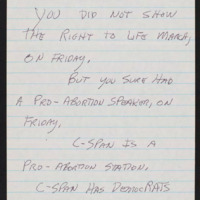 YOU DID NOT SHOW
THE RIGHT TO LIFE MARCH,
ON FRIDAY.
BUT YOU SURE HAD
A PRO-ABORTION SPEAKER, ON
FRIDAY.
C-SPAN IS A
PRO-ABORTION STATION.
C-SPAN HAS DEMOCRATS